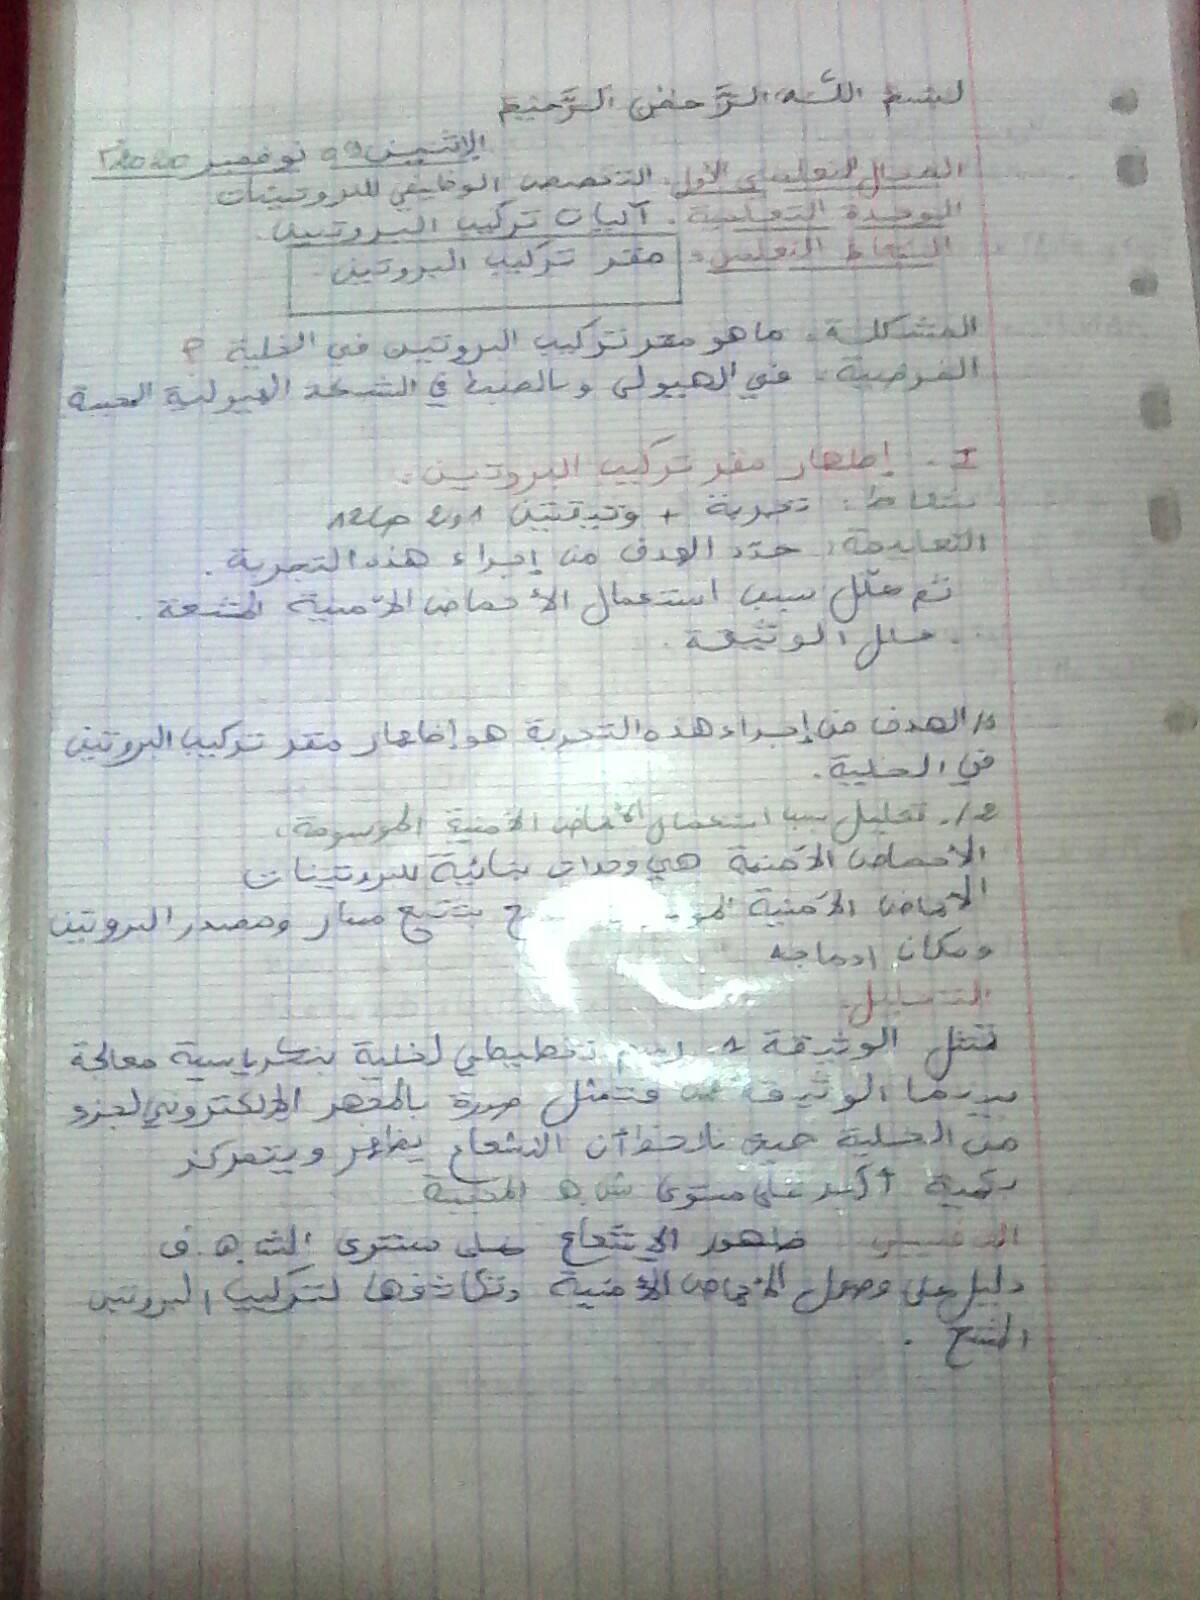 بسم الله الرَّحمن الرَّحيم
الإثنين 09 نوفمبر 2020م
المجال التعلمي الأول: التخصص الوظيفي للبروتينات
الوحدة التعلمية: آليات تركيب البروتين.
النشاط التعلمي: مقر تركيب البروتين
المشكلة: ما هو مقر تركيب البروتين في الخلية ؟
الفرضية: في الهيولى وبالضبط في الشبكة الهيولية المحببة
I - إظهار مقر تركيب البروتين:
نشاط: تجربة + وثيقتين 1 و 2 ص 12
التعليمة: حدّد الهدف من إجراء هذه التجربة.
ثم علّل سبب استعمال الأحماض الأمنية المشعة.
. حلل الوثيقة.
1/ الهدف من إجراء هذه التجربة هو إظهار مقر تركيب البروتين
في الخلية.
2/. تعليل سبب استعمال الأحماض الأمنية الموسومة:
الأحماض الأمنية هي وحدات بنائية للبروتينات
الأحماض الأمنية بتتبع مسار ومصدر البروتين
ومكان ادماجه
التحليل:
تمثل الوثيقة 1 رسم تخطيطي لخلية بنكرياسية معالجة
بينما الوثيقة فتمثل صورة بالمجهر الإلكتروني لجزء
من الخلية حيث نلاحظ أن الاشعاع يظهر ويتمركز
بكمية أكبر على مستوى ش ه المحببة
التفسير ظهور الإشعاع على مستوى الش. ه. ف
دليل على وصول الأحماض الأمنية وتكاثفها لتركيب البروتين
المشع.